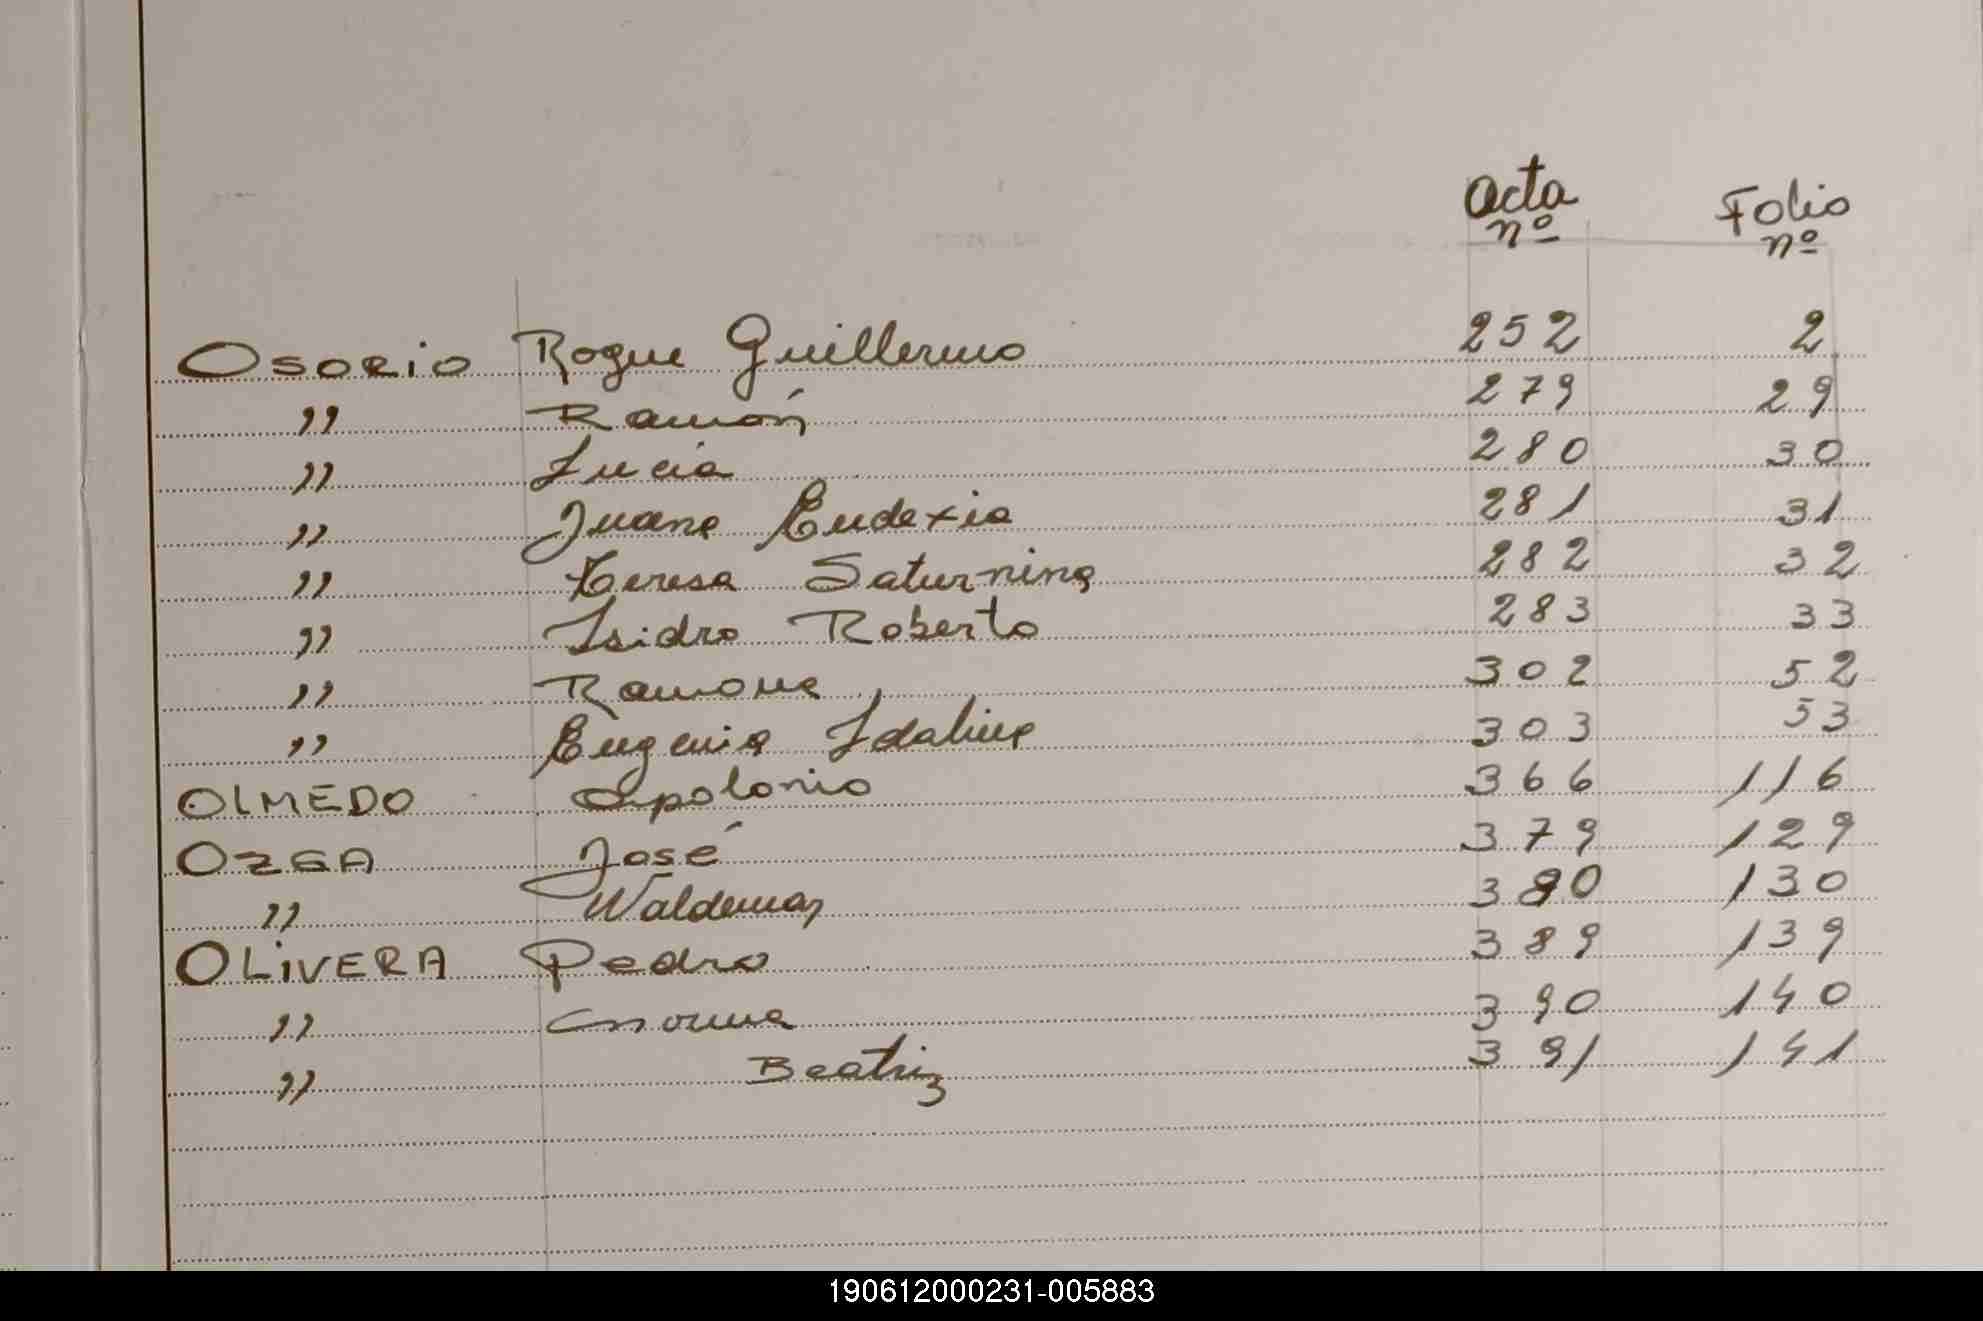 Acta nº Folio nº
OSORIO Roque Guillermo 252 2
" Ramón 279 29
" Lucia 280 30
" Juana Eudexia 281 31
" Teresa Saturnina 282 32
" Isidro Roberto 283 33
" Ramona 302 52
" Eugenia Idalina 303 53
OLMEDO Apolonio 366 116
OZGA José 379 129
" Waldemar 380 130
OLIVERA Pedro 389 139
" Norma 390 140
" Beatriz 391 141
190612000231-005883